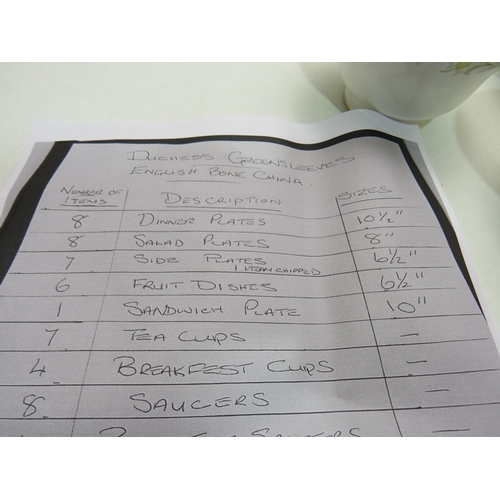 Duchess Greensleeves
English Bone China
Number of Items Description Sizes
8 Dinner Plates 10½"
8 Salad Plates 8"
7 Side Plates 6½"
1 item chipped
6 Fruit Dishes 6½"
1 Sandwich Plate 10"
7 Tea Cups –
4 Breakfest Cups –
8 Saucers –
Saucers –